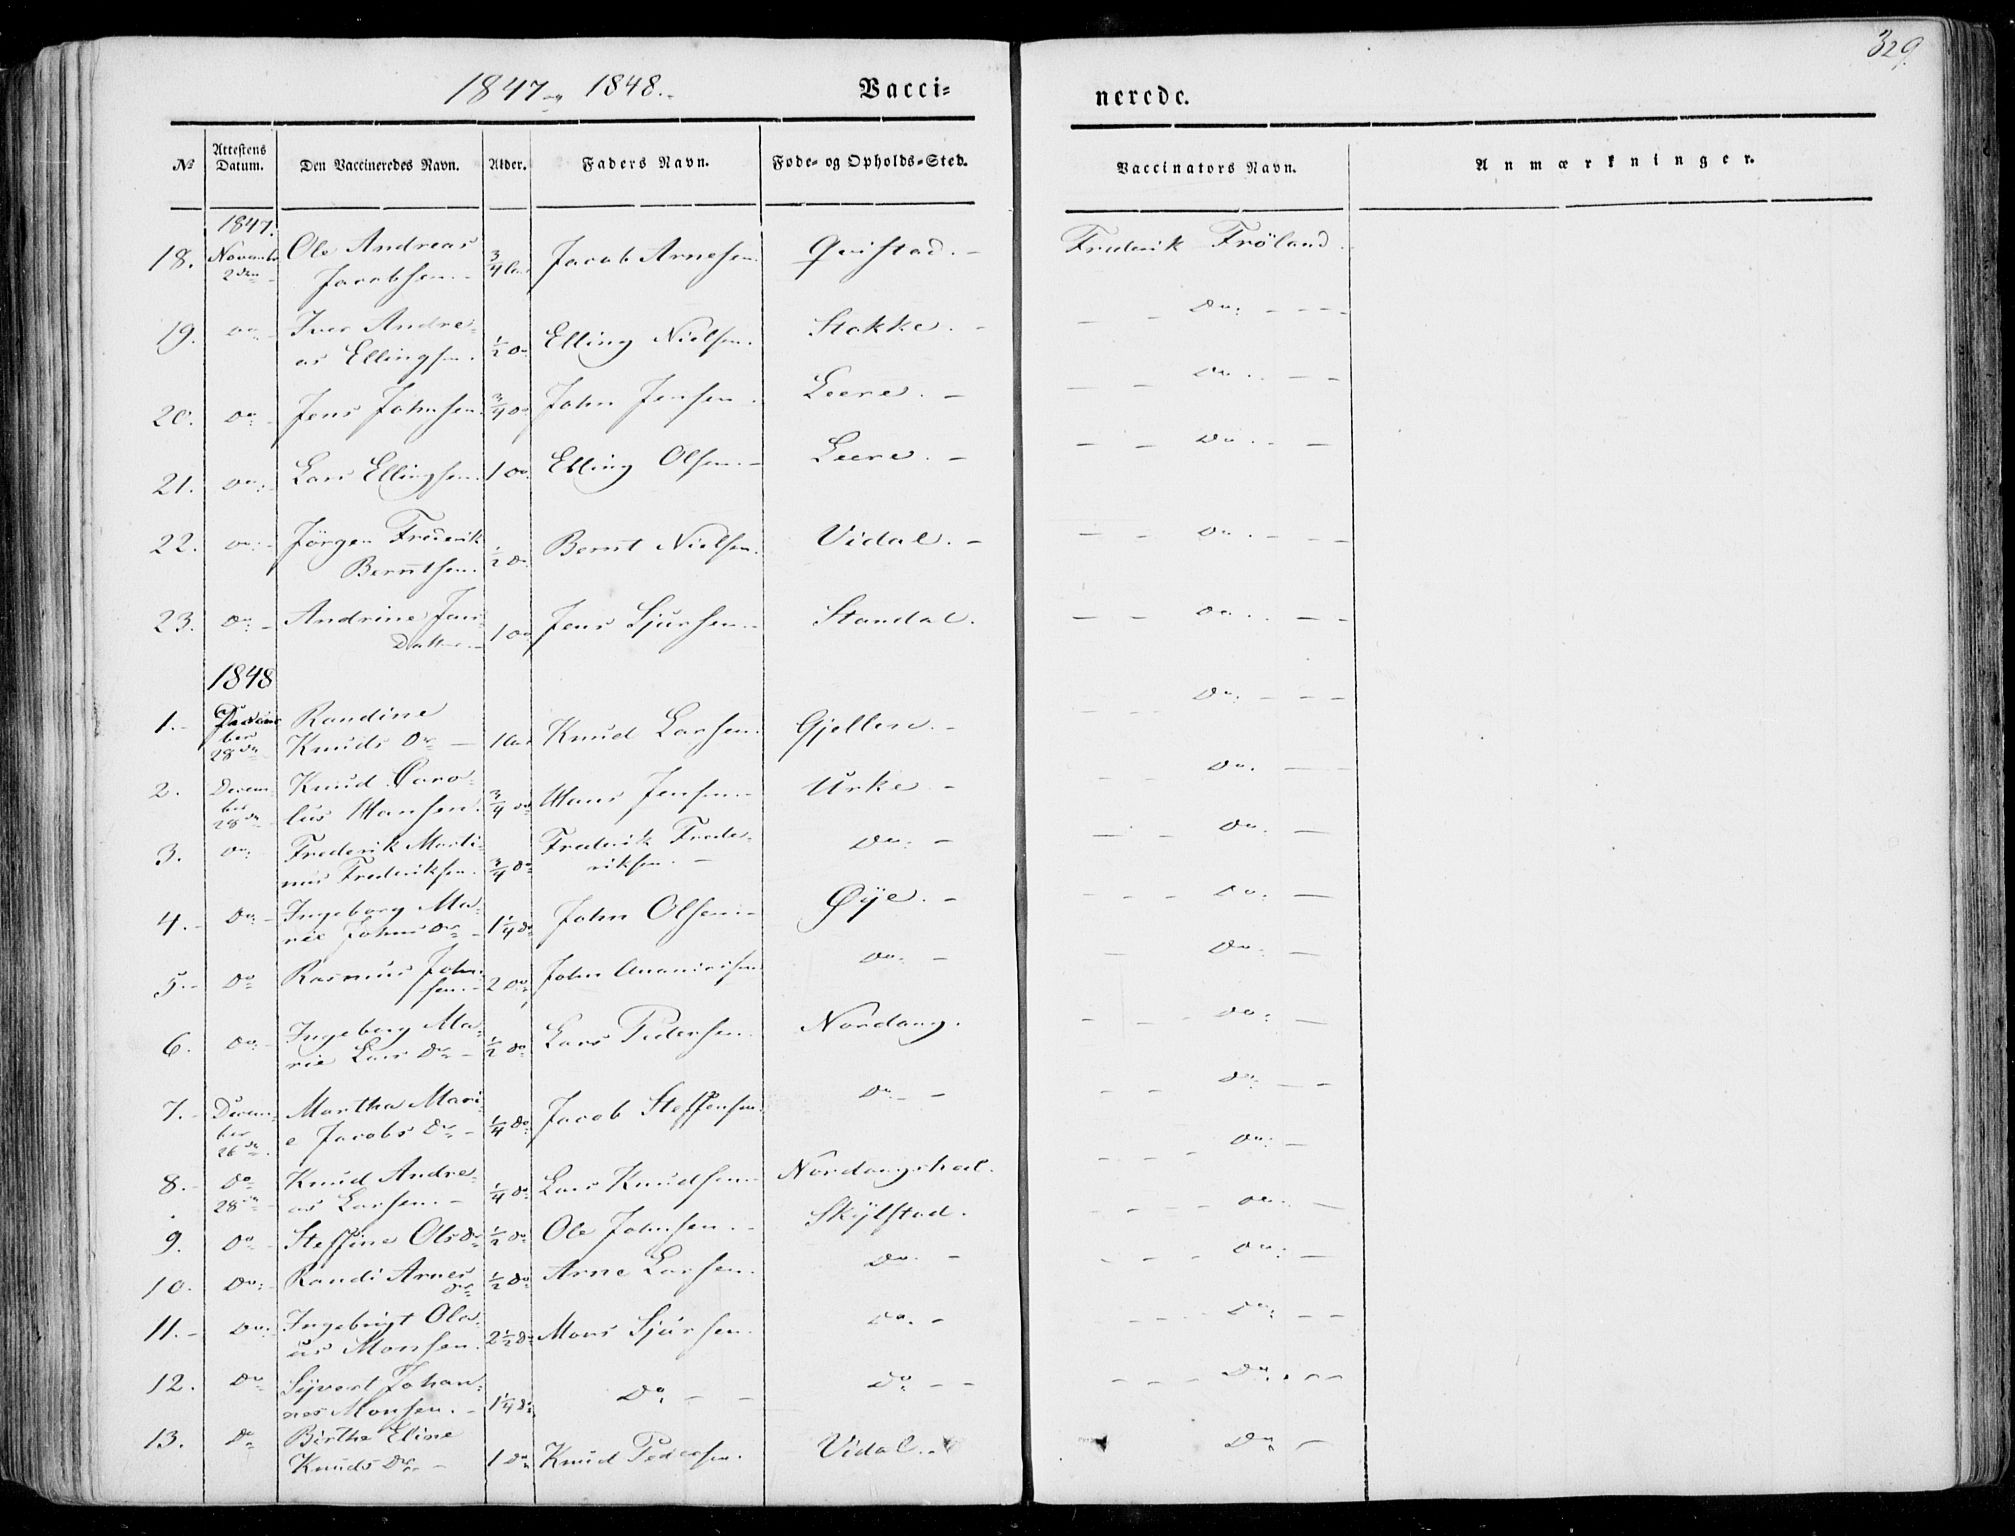 329.
1847 og 1848. Vacci- nerede.
No Attestens Datum. Den Vaccineredes Navn. Alder. Faders Navn. Føde- og Opholds-Sted. Vaccinators Navn. Anmærkninger.
1847.
18. Novemb. 2den Ole Andreas Jacobsen. 3/4 Aar Jacob Arnesen. Qvistad. Frederik Fröland.
19. Do Iver Andreas Ellingsen. 1/2 Do Elling Nielsen. Stokke. Do.
20. Do Jens Johnsen. 3/4 Do John Jensen. Leere. Do.
21. Do. Lars Ellingsen. 1 Do Elling Olsen. Leere. Do.
22. Do. Jörgen Frederik Berntsen. 1/2 Do. Bernt Nielsen. Vidal. Do.
23. Do. Andrine Jens Datter. 1 Do Jens Sjursen. Standal. Do.
1848
1. December 28de Randine Knuds Dr 1 Aar Knud Larsen. Gjellen. Do.
2. December 28de Knud Carolus Hansen. 3/4 Do Hans Jensen. Urke. Do.
3. Do. Frederik Martinus Frederiksen. 3/4 Do Frederik Frederiksen. Do. Do.
4. Do. Ingeborg Marie Johns Dr 1 1/4 Do John Olsen. Øye. Do.
5. Do Rasmus Johnsen. 2 Do. John Ananiasen. Do. Do.
6. Do. Ingeborg Marie Lars Dr 1/2 Do Lars Pedersen. Nordang. Do.
7. December 26de Martha Marie Jacobs Dr 1/4 Do. Jacob Steffensen. Do. Do.
8. Do 28de Knud Andreas Larsen. 1/4 Do Lars Knudsen. Nordangshol. Do.
9. Do Steffine Ols Dr 1/2 Do Ole Johnsen. Skylstad. Do.
10. Do. Randi Arnes Dr 1/2 Do. Arne Larsen. Do. Do.
11. Do. Ingebrigt Olaus Monsen. 2 1/2 Do Mons Sjursen. Do. Do.
12. Do Syvert Johannes Monsen. 1 1/4 Do. Do. Do Do.
13. Do Birthe Eline Knuds Dr 1 Do Knud Pedersen. Vidal. Do.